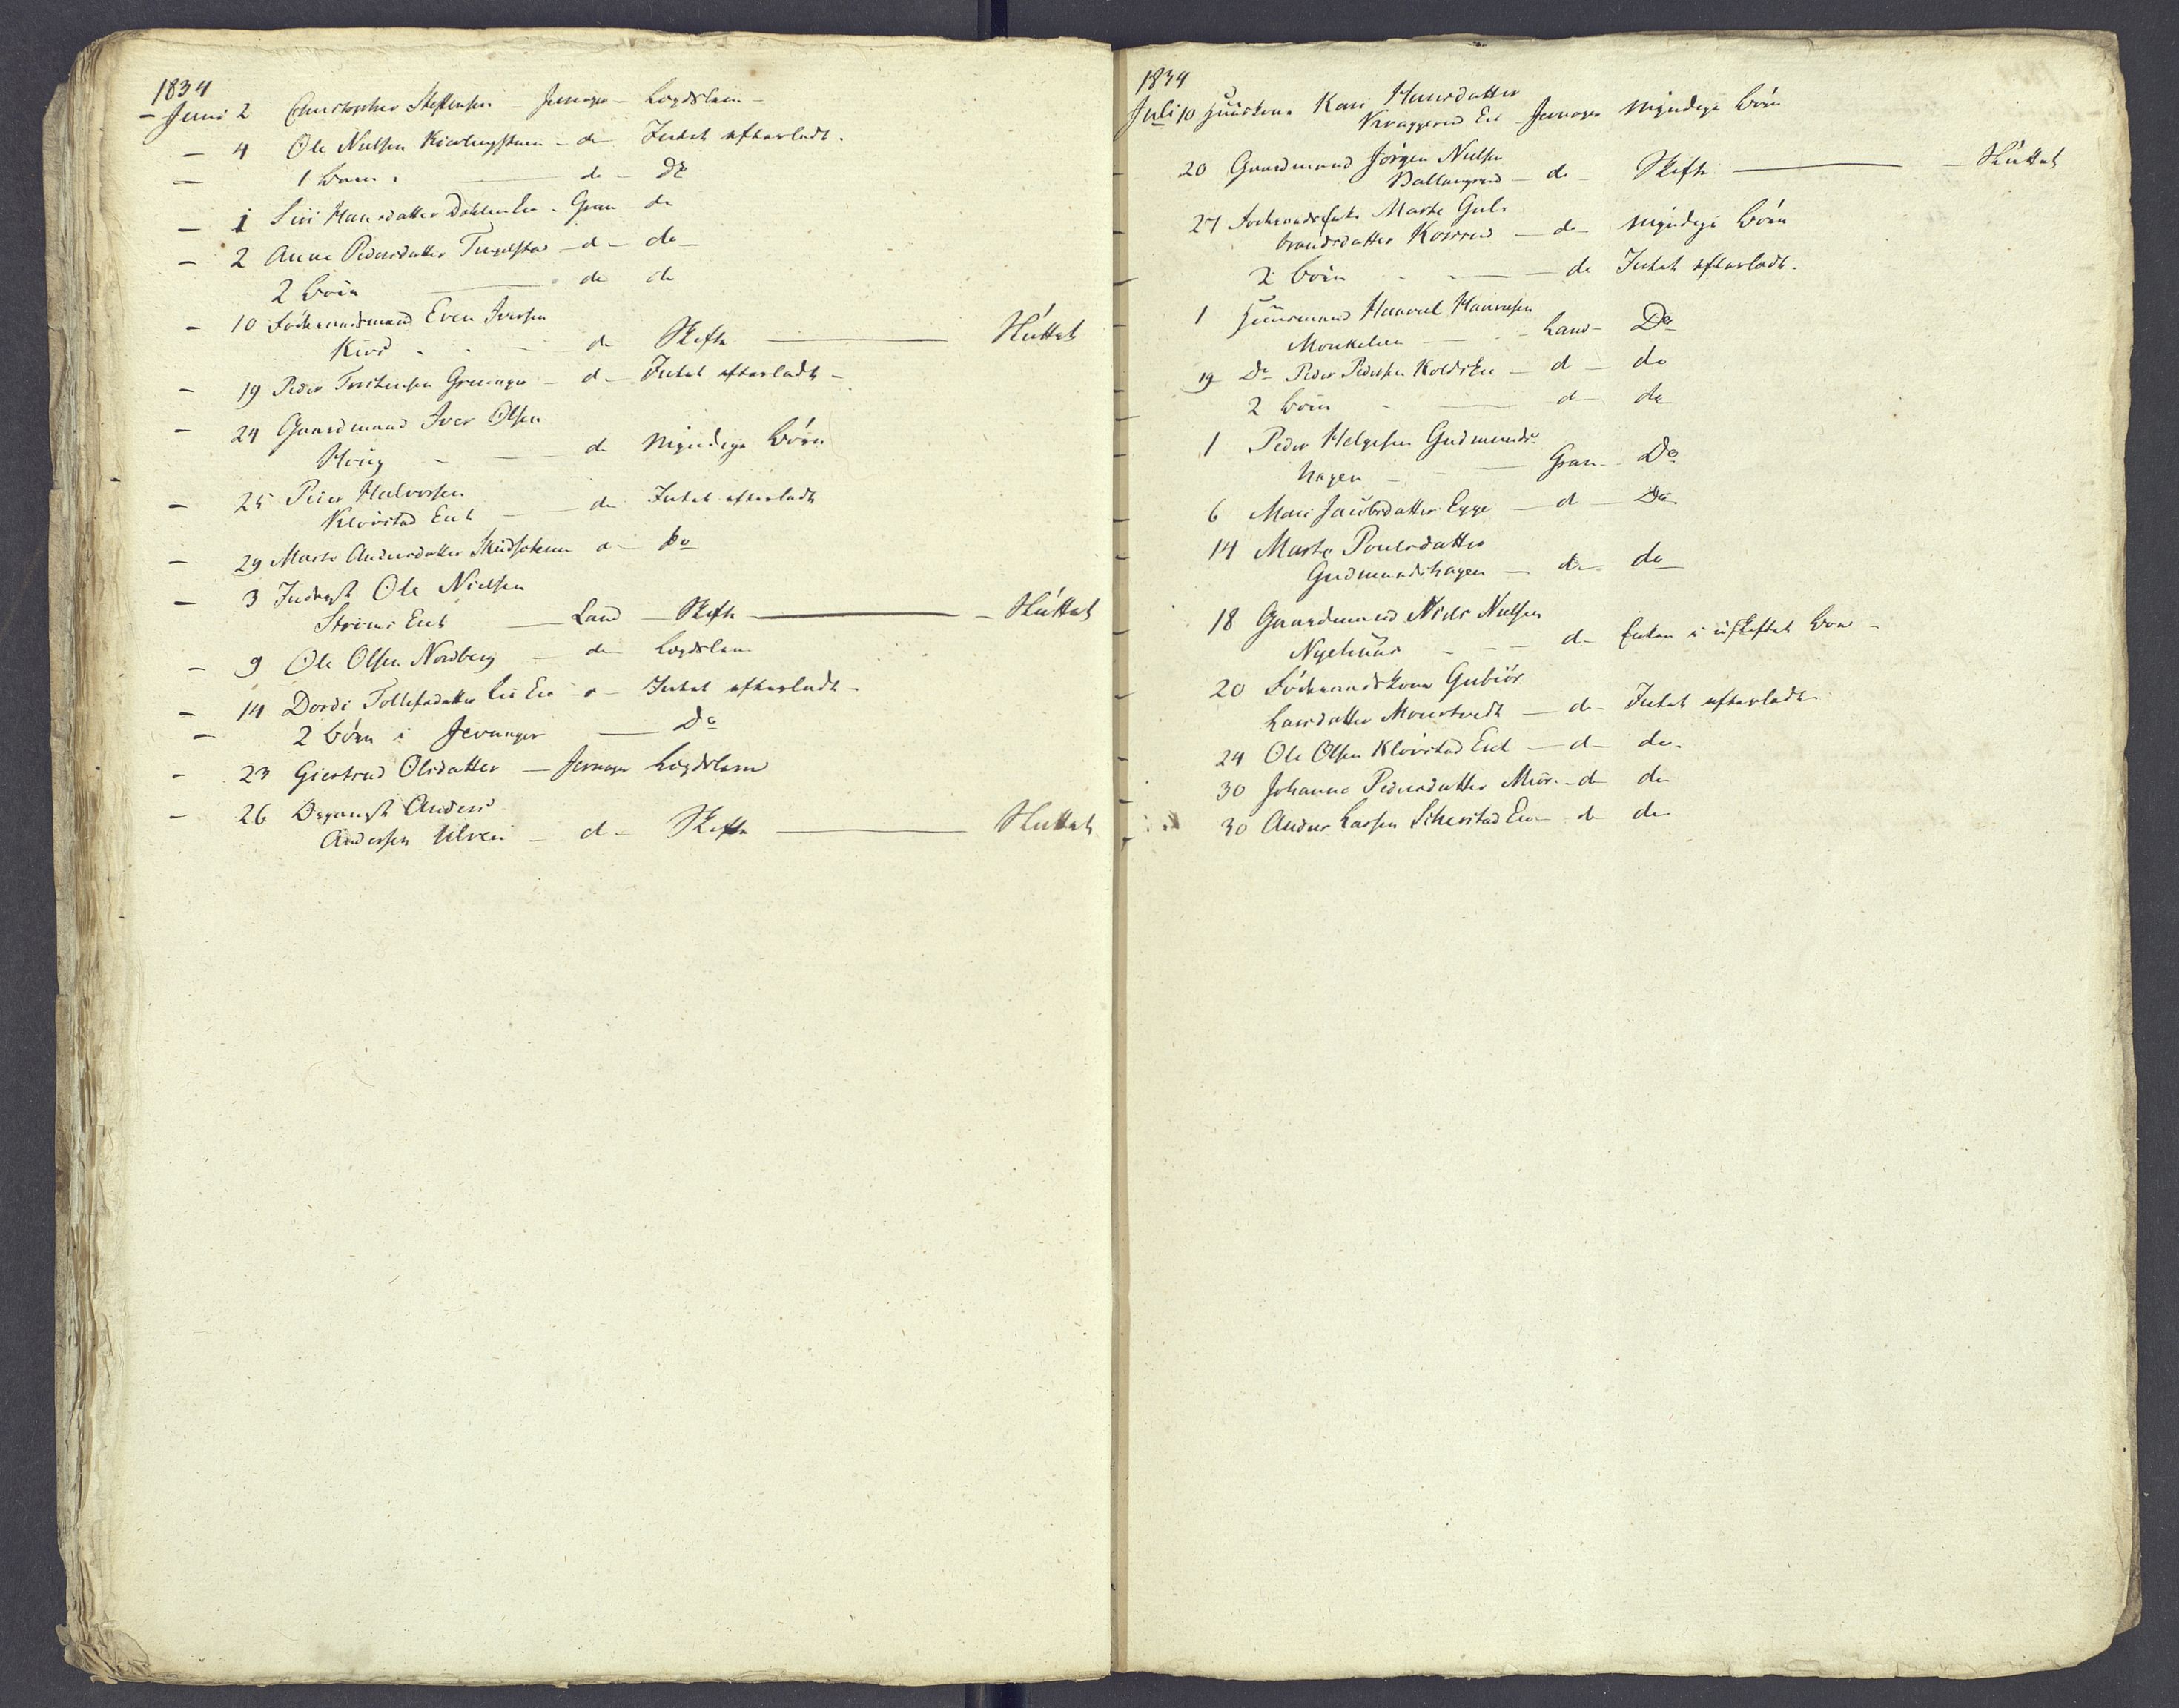 1834
– Juni 2 Christopher Steffensen – Jevnager – Lægdslem –
– 4 Ole Nielsen – do Intet efterladt.
– 1 Barn – do – Do
– 1 Siri Hansdatter Dohlen Eie – Gran do
– 2 Anne Pedersdatter – do – do –
2 Børn – do do
– 10 Föderaadsmand Even Iversen
– do Skifte – Sluttet
– 19 Peder Torstensen Grinager – do – Intet efterladt –
– 24 Gaardmand Iver Olsen
Houg – do Myndige Börn
– 25 Peder Halvorsen
Klörstad Eiet – do Intet efterladt
– 29 Marte Andersdatter – do – Do
– 3 Inderst Ole Nielsen
Ströms Eiet – Land – Skifte – Sluttet
– 9 Ole Olsen Nordberg – do Lægdslem
– 14 Dordi Tollefsdatter Lie Eie – do – Intet efterladt –
– 2 Börn i Jevnager – Do
– 23 Giertrud Olsdatter – Jevnager Lægdslem
– 26 Anders
Andersen Ulven – do – Skifte – Sluttet
1834
Juli 10 Huuskone Kari Hansdatter
Kraggerud Eie – Jevnager Myndige Börn
20 Gaardmand Jörgen Nielsen
Ballangrud – do – Skifte – Sluttet
27 Föderaadsenke Marte Gul-
brandsdatter – do – Myndige Börn
2 Börn – do Intet efterladt.
1 Huusmand Haavel Hansen
– Land – Do
19 Do Peder Pedersen – do – do
2 Börn – do – do
1 Peder Helgesen Gudmunds-
hagen – Gran – Do
6 Mari Jacobsdatter Egge – do – Do
14 Marte Poulsdatter
Gudmundshagen – do – do
18 Gaardmand Niels Nielsen
Nyehuus – do – Enken i uskiftet Boe –
20 Föderaadskone Gubiör
Larsdatter – do – Intet efterladt
24 Ole Olsen Klörstad Eiet – do – do.
30 Johanne Pedersdatter – do do
30 Anders Larsen Eie – do do